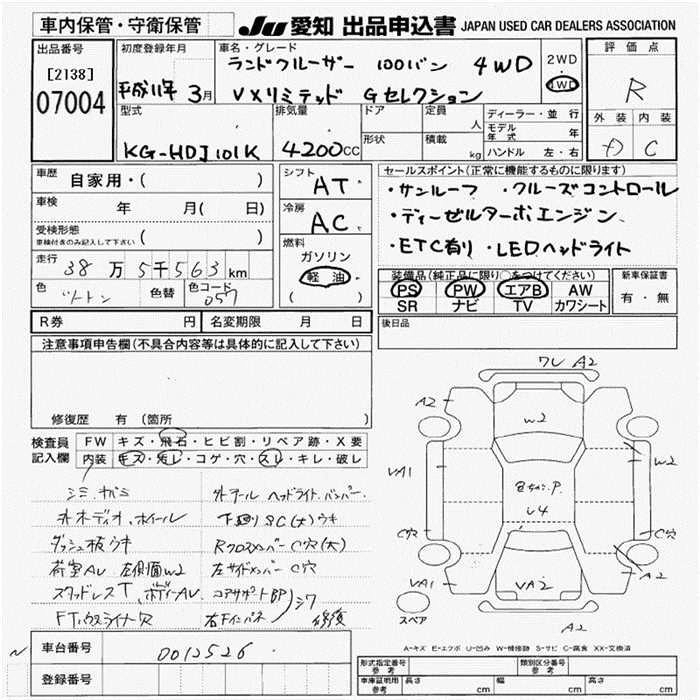 車内保管・守衛保管
JU 愛知 出品申込書 JAPAN USED CAR DEALERS ASSOCIATION
出品番号
[2138]
07004
初度登録年月
平成11年 3月
車名・グレード
ランドクルーザー 100バン 4WD
VXリミテッド Gセレクション
2WD
・
4WD
評価点
R
外装 内装
C
型式
KG-HDJ101K
排気量
4200cc
ドア
形状
定員 人
積載 kg
ディーラー・並行
モデル年式 年
ハンドル 左・右
車歴 自家用・( )
車検 年 月( 日)
受検形態
車検付きのみ記入して下さい ( )
走行 38万5千563km
色 ツートン 色替 色コード 057
シフト AT
冷房 AC
燃料
ガソリン
軽油
( )
セールスポイント(正常に機能するものに限ります)
・サンルーフ ・クルーズコントロール
・ディーゼルターボエンジン
・ETC有り ・LEDヘッドライト
装備品(純正品に限り○をつけてください)
PS PW エアB AW
SR ナビ TV カワシート
新車保証書
有・無
後日品
R券 円 名変期限 月 日
注意事項申告欄(不具合内容等は具体的に記入して下さい)
修復歴 有(箇所
検査員
記入欄
FW キズ・飛石・ヒビ割・リペア跡・X要
内装 キズ・汚レ・コゲ・穴・スレ・キレ・破レ
外オーディオ、ホイール 下廻りSC(大)ウキ
ダッシュ板ウキ Rクロスメンバー C穴(大)
荷室AU 左側面W2 左サイドメンバー C穴
スタッドレスT、ボディーAU コアサポートBP
右Fインパネ シワ 修復
車台番号 0012526
登録番号
ワレ A2
A2
W2
VA1
W2
P
U4
C穴
C穴
VA1
VA2
A2
A2
スペア
A-キズ E-エクボ U-凹み W-補修跡 S-サビ C-腐食 XX-交換済
形式指定番号
参考
類別区分番号
参考
車庫証明用
参考
長さ cm 幅 cm 高さ cm